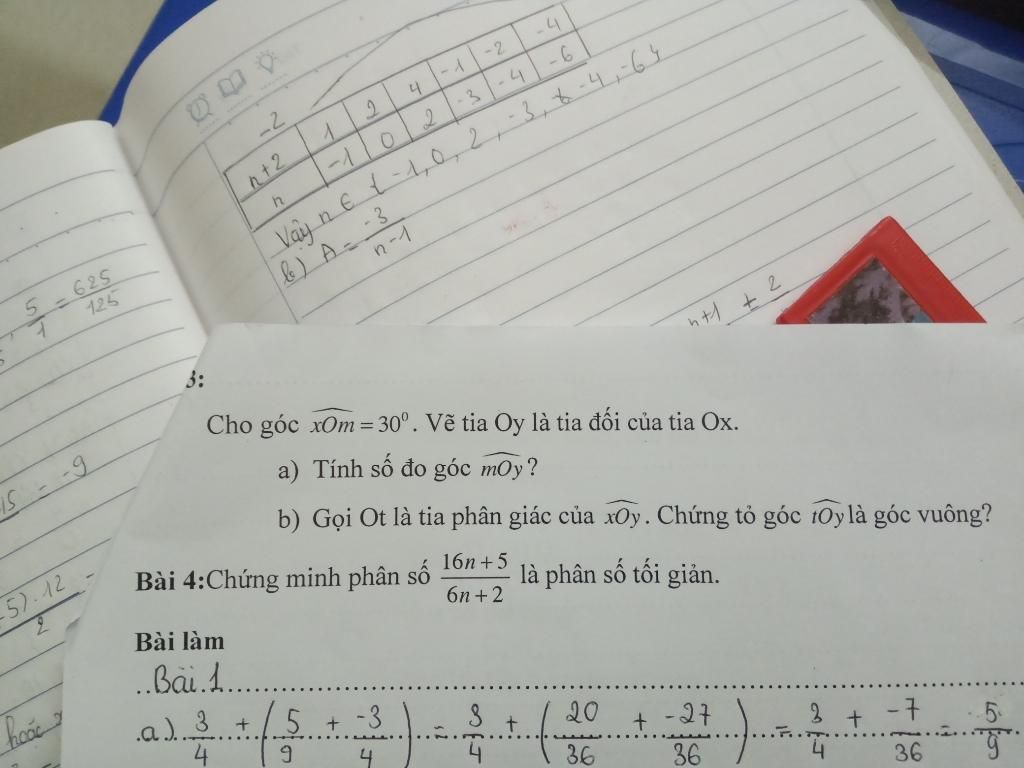 -2
n+2 1 2 4 -1 -2 -4
n -1 0 2 -3 -4 -6
Vậy n ∈ { -1, 0, 2, -3, -4, -6 }
b) A = -3/(n-1)
5/1 = 625/125
n+1 + 2
15 = -9
-5).12 =
2
hoặc
3:
Cho góc xOm = 30⁰. Vẽ tia Oy là tia đối của tia Ox.
a) Tính số đo góc mOy?
b) Gọi Ot là tia phân giác của xOy. Chứng tỏ góc tOy là góc vuông?
Bài 4:Chứng minh phân số (16n+5)/(6n+2) là phân số tối giản.
Bài làm
Bài 1
a) 3/4 + (5/9 + -3/4) = 3/4 + (20/36 + -27/36) = 3/4 + -7/36 = 5/9